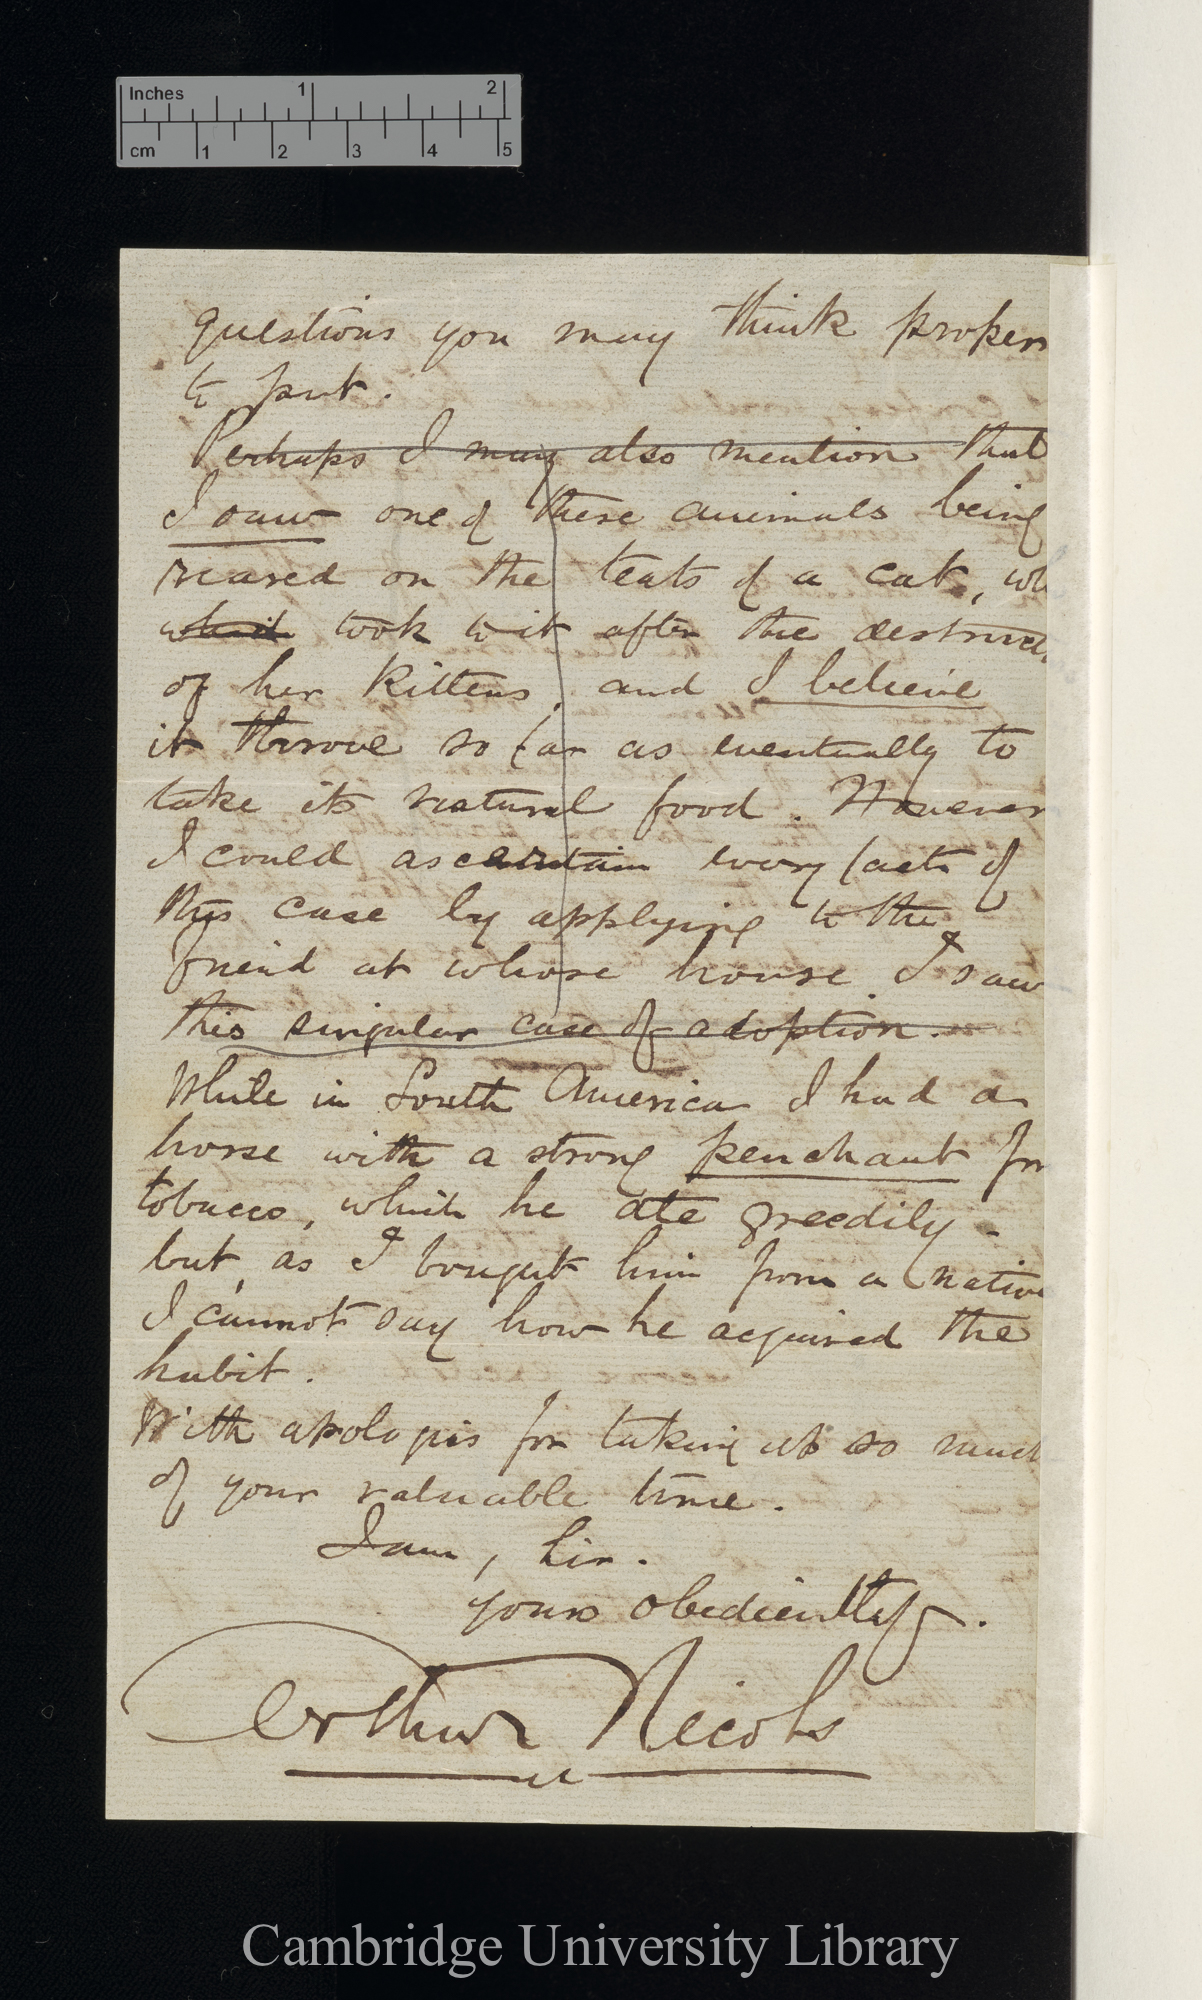 Inches 1 2
cm 1 2 3 4 5
questions you may think proper
to put.
Perhaps I may also mention that
I saw one of these animals being
reared on the teats of a cat, wh
which took to it after the destruct
of her kittens, and I believe
it throve so far as eventually to
take its natural food. However
I could ascertain every facts of
this case by applying to the
friend at whose house I saw
this singular case of adoption.
While in South America I had a
horse with a strong penchant for
tobacco, which he ate greedily -
but, as I bought him from a native
I cannot say how he acquired the
habit.
With apologies for taking up so much
of your valuable time.
I am, Sir.
yours obediently.
Arthur Nicols
Cambridge University Library